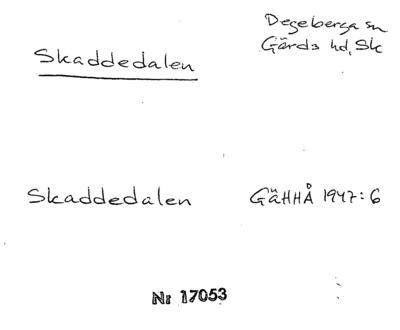 Skaddedalen
Degeberga sn
Gärds hd, Sk
Skaddedalen GäHHÅ 1947:6
Nr 17053